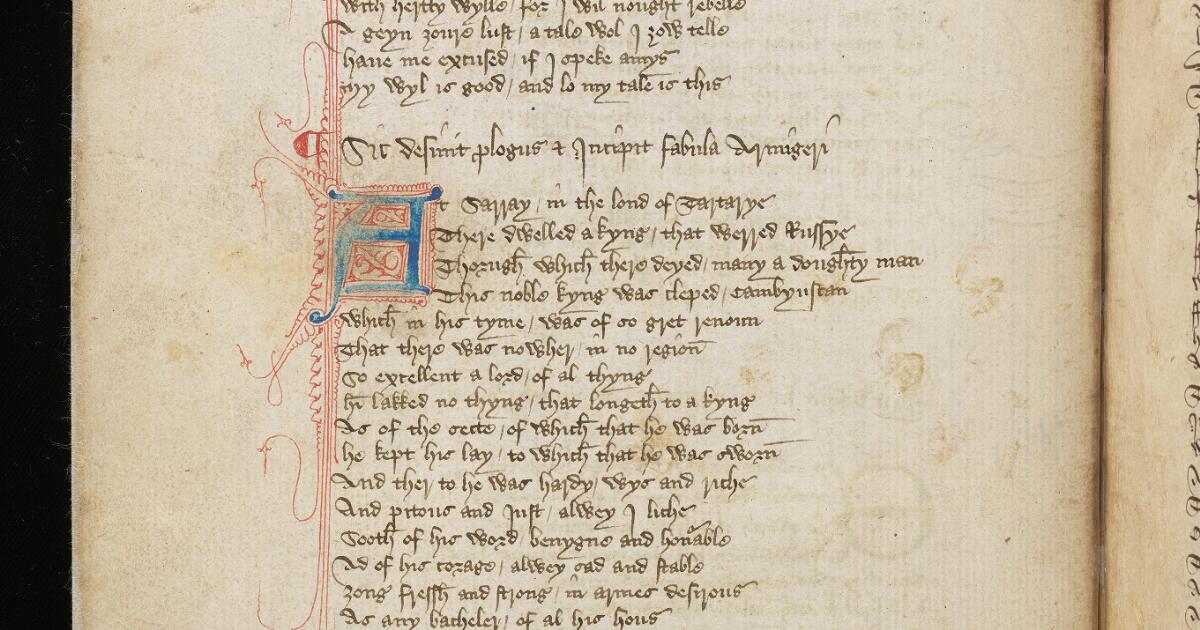 with hertty wylle / for I wil nought rebelle
A geyn ȝoure lust / a tale wol I ȝow telle
haue me excused / if I speke amys
my wyl is good / and lo my tale is this
Sic desinit plogus & Incipit fabula Armigeri
At Sarray / in the lond of Tartarye
There dwelled a kyng / that werred Russye
Thorugh which there deyed / many a doughty man
This noble kyng was cleped / Cambynskan
which in his tyme / was of so gret renoun
That there was nowher / in no region
So excellent a lord / of al thyng
hī lakked no thyng / that longeth to a kyng
As of the secte / of which that he was born
he kept his lay / to which that he was sworn
And ther to he was hardy / wys and riche
And pitous and Iust / alwey I liche
Sooth of his word / benygne and honable
Ad of his corage / alwey sad and stable
ȝong fressh and strong / in armes desirous
As any bacheler / of al his hous